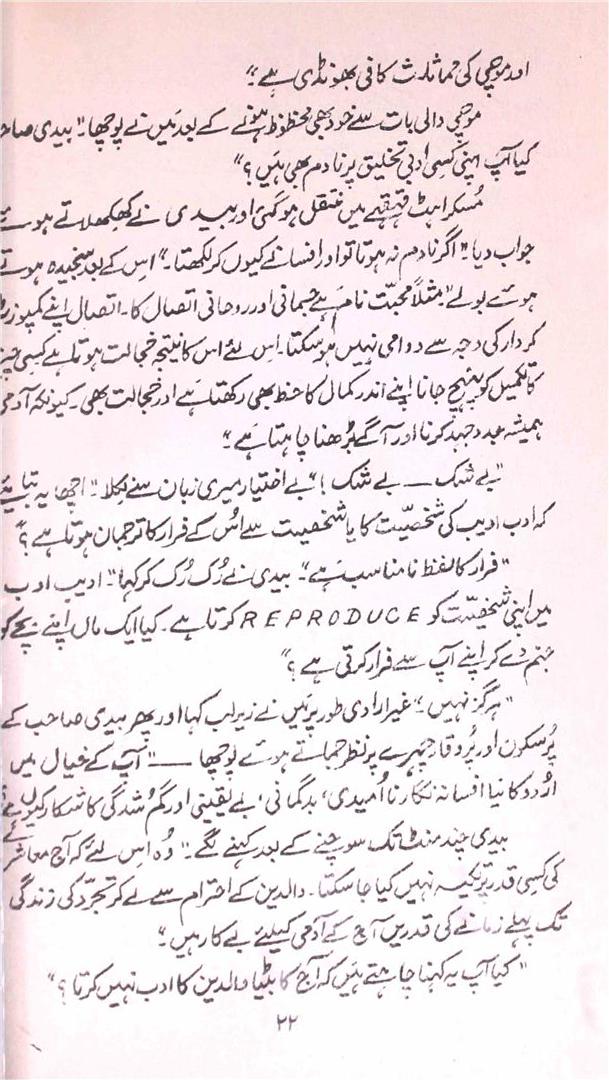 اور موچی کی مماثلث کافی بھونڈی ہے۔“
موچی والی بات سے خود بھی محظوظ ہونے کے بعد میں نے پوچھا۔ ”بیدی صاحب
کیا آپ اپنی کسی ادبی تخلیق پر نادم بھی ہیں؟“
مُسکراہٹ قہقہے میں منتقل ہو گئی اور بیدی نے کھِکھلاتے ہوئے
جواب دیا۔ ”اگر نادم نہ ہوتا تو اور افسانے کیوں کر لکھتا۔“ اس کے بعد سنجیدہ ہوتے
ہوئے بولے ”مثلاً محبّت نام ہے جسمانی اور روحانی اتصال کا۔ اتصال اپنے کمپوزڈ
کردار کی وجہ سے دوامی نہیں ہو سکتا۔ اس لئے اس کا نتیجہ خجالت ہوتا ہے کسی چیز
کا تکمیل کو پہنچ جانا اپنے اندر کمال کا حظ بھی رکھتا ہے اور خجالت بھی۔ کیونکہ آدمی
ہمیشہ جدوجہد کرنا اور آگے بڑھنا چاہتا ہے۔“
”بے شک — بے شک!“ بے اختیار میری زبان سے نکلا۔ ”اچھا یہ بتایئے
کہ ادب ادیب کی شخصیّت کا یا شخصیت سے اُس کے فرار کا ترجمان ہوتا ہے؟“
”فرار کا لفظ نامناسب ہے“۔ بیدی نے رُک رُک کر کہا۔ ”ادیب ادب
میں اپنی شخصیّت کو REPRODUCE کرتا ہے۔ کیا ایک ماں اپنے بچے کو
جنم دے کر اپنے آپ سے فرار کرتی ہے؟“
”ہرگز نہیں“۔ غیر ارادی طور پر میں نے زیرِ لب کہا اور پھر بیدی صاحب کے
پُرسکون اور پُروقار چہرے پر نظر جماتے ہوئے پوچھا — ”آپ کے خیال میں
اُردو کا نیا افسانہ نگار نا اُمیدی، بدگمانی، بے یقینی اور گم شدگی کا شکار کیوں ہے؟
بیدی چند منٹ تک سوچنے کے بعد کہنے لگے۔ ”وُہ اس لئے کہ آج معاشرے
کی کسی قدر پر تکیہ نہیں کیا جا سکتا۔ والدین کے احترام سے لے کر تجرّد کی زندگی
تک پہلے زمانے کی قدریں آج کے آدمی کیلئے بے کار ہیں۔“
”کیا آپ یہ کہنا چاہتے ہیں کہ آج کا بیٹا والدین کا ادب نہیں کرتا؟“
۲۲